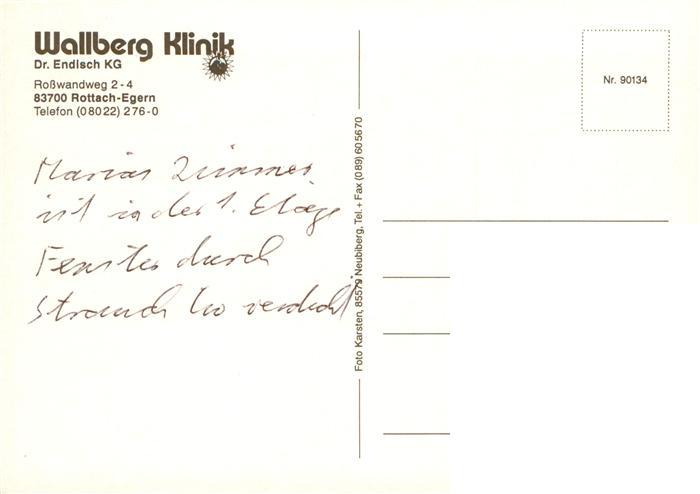 Wallberg Klinik
Dr. Endisch KG
Roßwandweg 2-4
83700 Rottach-Egern
Telefon (08022) 276-0
Marias Zimmer
ist in der 1. Etage
Fenster durch
Strauch verdeckt
Foto Karsten, 85579 Neubiberg, Tel.+ Fax (089) 605670
Nr. 90134